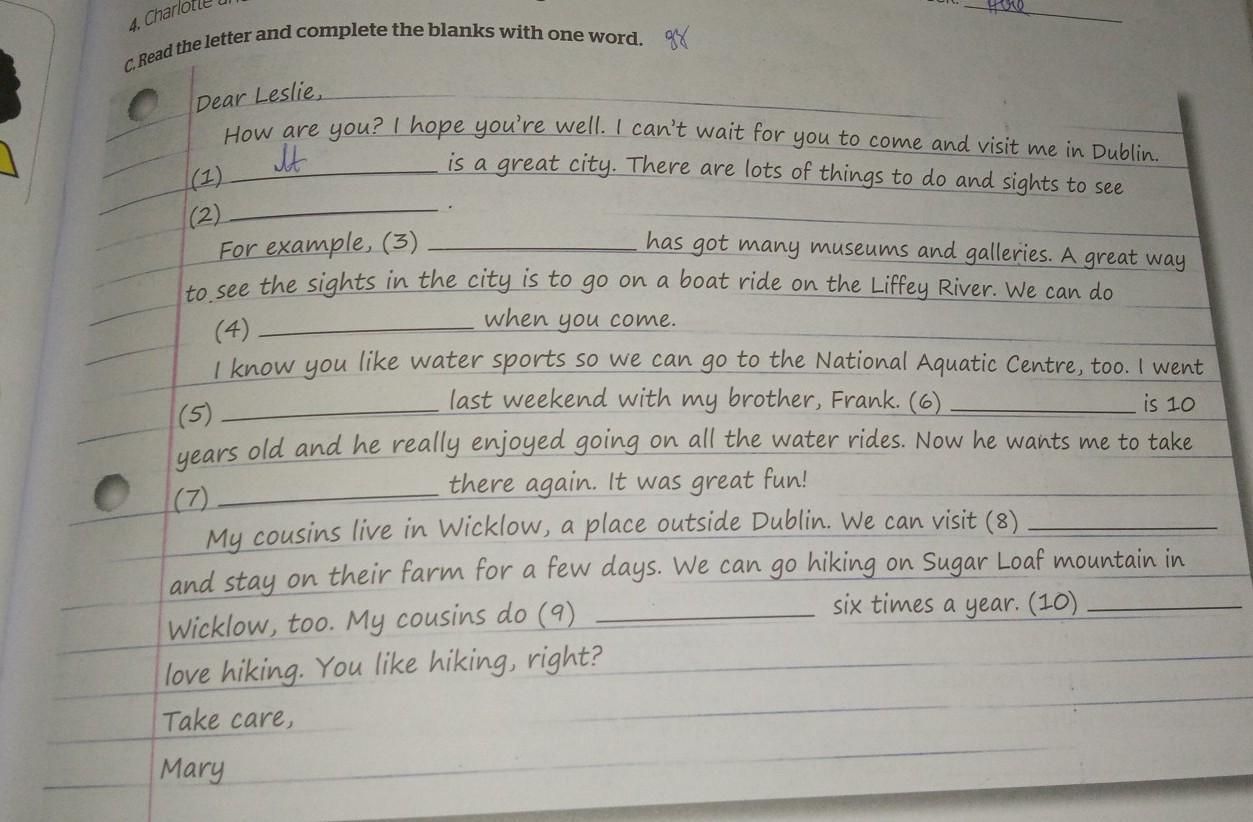 4. Charlotte
C. Read the letter and complete the blanks with one word.
Dear Leslie,
How are you? I hope you're well. I can't wait for you to come and visit me in Dublin.
(1) It is a great city. There are lots of things to do and sights to see
(2) ____ .
For example, (3) ____ has got many museums and galleries. A great way
to see the sights in the city is to go on a boat ride on the Liffey River. We can do
(4) ____ when you come.
I know you like water sports so we can go to the National Aquatic Centre, too. I went
(5) ____ last weekend with my brother, Frank. (6) ____ is 10
years old and he really enjoyed going on all the water rides. Now he wants me to take
(7) ____ there again. It was great fun!
My cousins live in Wicklow, a place outside Dublin. We can visit (8) ____
and stay on their farm for a few days. We can go hiking on Sugar Loaf mountain in
Wicklow, too. My cousins do (9) ____ six times a year. (10) ____
love hiking. You like hiking, right?
Take care,
Mary